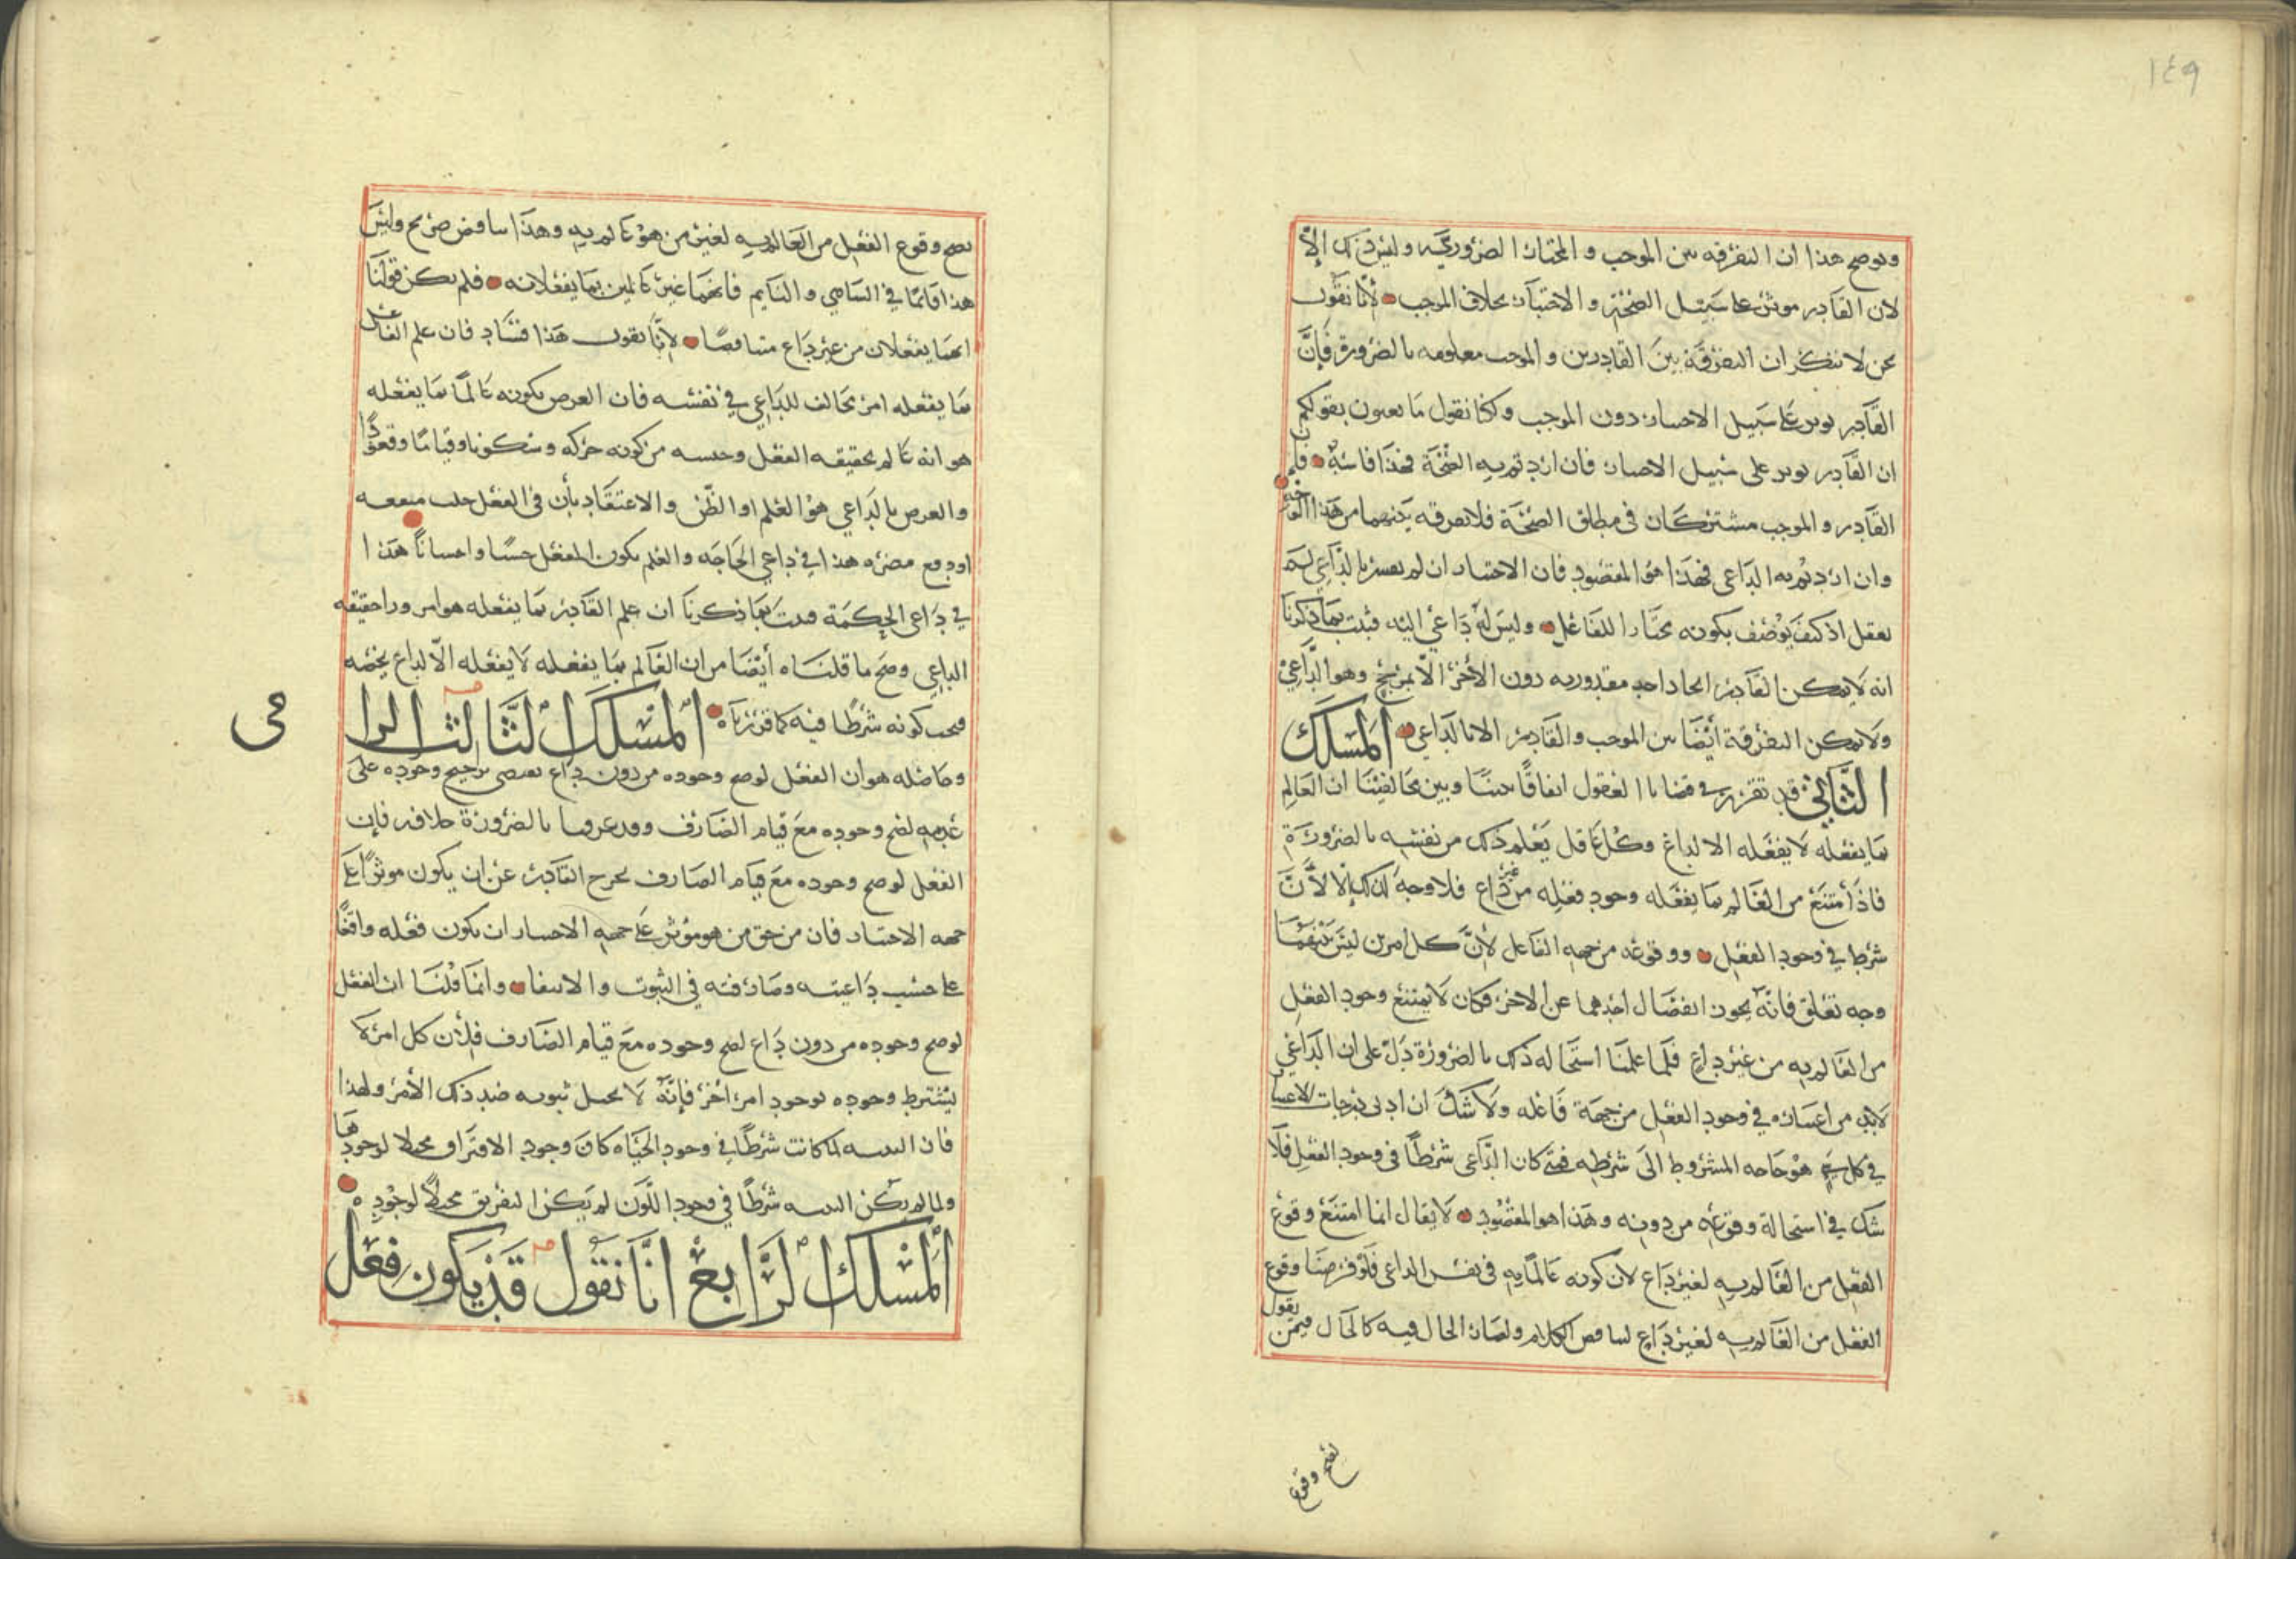 ١٤٩
ويوضح هذا ان التفرقه بين الموجب و المختار الضروريه وليس ذلك الا
لان القادر موثر على سبيل الصحة و الاختيار بخلاف الموجب لانا نقول
نحن لا ننكر ان التفرقة بين القادرين و الموجب معلومه بالضرورة فان
القادر يوثر على سبيل الاختيار دون الموجب ولكنا نقول ما تعنون بقولكم
ان القادر يوثر على سبيل الاختيار فان اردتم به الصحة فهذا فاسد فان
القادر و الموجب مشتركان في مطلق الصحة فلا تفرقه بينهما من هذا الوجه
وان اردتم به الداعي فهذا هو المقصود فان الاختيار ان لم يفسر بالداعي لم
يعقل اذ كيف يوصف بكونه مختارا للفاعل وليس له داعي اليه فثبت بما ذكرنا
انه لا يمكن القادر ايجاد احد مقدوريه دون الاخر الا لمرجح وهو الداعي
ولا يمكن التفرقة أيضا بين الموجب والقادر الا بالداعي المسلك
الثاني قد تقرر في قضايا العقول اتفاقا بيننا وبين مخالفينا ان العالم
بما يفعله لا يفعله الا لداع وكل عاقل يعلم ذلك من نفسه بالضرورة
فاذا امتنع من العالم بما يفعله وجود فعله من غير داع فلا وجه لذلك الا لان
شرط في وجود الفعل ووقوعه من جهه الفاعل لان كل امرين ليس بينهما
وجه تعلق فانه يجوز انفصال احدهما عن الاخر فكان لا يمتنع وجود الفعل
من العالم به من غير داع فلما علمنا استحاله ذلك بالضرورة دل على ان الداعي
لابد من اعتباره في وجود الفعل من جهة فاعله ولا شك ان ادنى درجات الاعتبار
في كل شي هو حاجه المشروط الى شرطه فمتى كان الداعي شرطا في وجود الفعل فلا
شك في استحالة وقوعه من دونه وهذا هو المقصود لا يقال انما امتنع وقوع
الفعل من العالم به لغير داع لان كونه عالما به في نفس الداعي فلو فرضنا وقوع
الفعل من العالم به لغير داع لتناقض الكلام ولصار الحال فيه كالحال فيمن يقول
يصح وقوع
يصح وقوع الفعل من العالم به لغير من هو عالم به وهذا تناقض صريح وليس
هذا قائما في الساهي و النايم فانهما غير عالمين بما يفعلانه فلم يكن قولنا
انهما يفعلان من غير داع متناقضا لانا نقول هذا فساد فان علم الفاعل
بما يفعله امر مخالف للداعي في نفسه فان الغرض بكونه عالما بما يفعله
هو انه عالم بحقيقه الفعل وجنسه من كونه حركه وسكونا وقياما وقعودا
والغرض بالداعي هو العلم او الظن والاعتقاد بأن في الفعل جلب منفعه
او دفع مضره هذا في داعي الحاجه والعلم بكون الفعل حسنا واحسانا هذا
في داعي الحكمة فثبت بما ذكرنا ان علم القادر بما يفعله هو امر ورا حقيقه
الداعي وصح ما قلناه أيضا من ان العالم بما يفعله لا يفعله الا لداع يخصه
فيجب كونه شرطا فيه كما قررناه المسلك الثالث للرا
حى
وحاصله هو ان الفعل لو صح وجوده من دون داع يقتضي ترجيح وجوده على
عدمه لصح وجوده مع قيام الصارف وقد عرفنا بالضرورة خلافه فان
الفعل لو صح وجوده مع قيام الصارف لخرج القادر عن ان يكون موثرا على
جهه الاختيار فان من حق من هو موثر على جهه الاختيار ان يكون فعله واقفا
على حسب داعيته وصارفته في الثبوت والانتفا وانما قلنا ان الفعل
لو صح وجوده من دون داع لصح وجوده مع قيام الصارف فلأن كل امر لا
يشترط وجوده لوجود امر اخر فانه لا يحيل ثبوته ضد ذلك الأمر ولهذا
فان البنيه لما كانت شرطا في وجود الحياه كان وجود الافتراق محيلا لوجودها
ولما لم يكن البنيه شرطا في وجود اللون لم يكن التفريق محيلا لوجوده
المسلك الرابع انا نقول قد يكون فعل